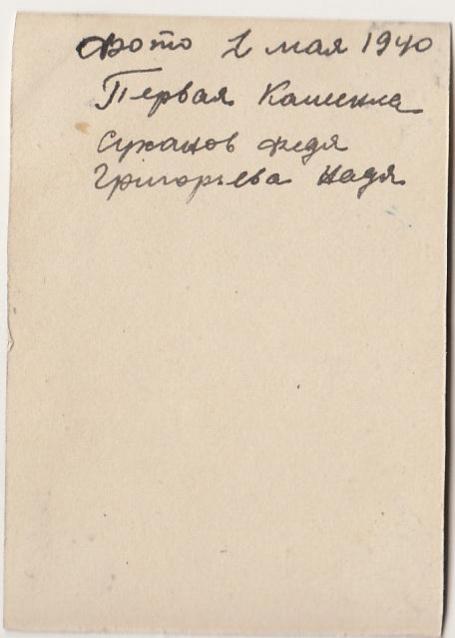 Фото 1 мая 1940
Первая
Суханов Федя
Григорьева Надя